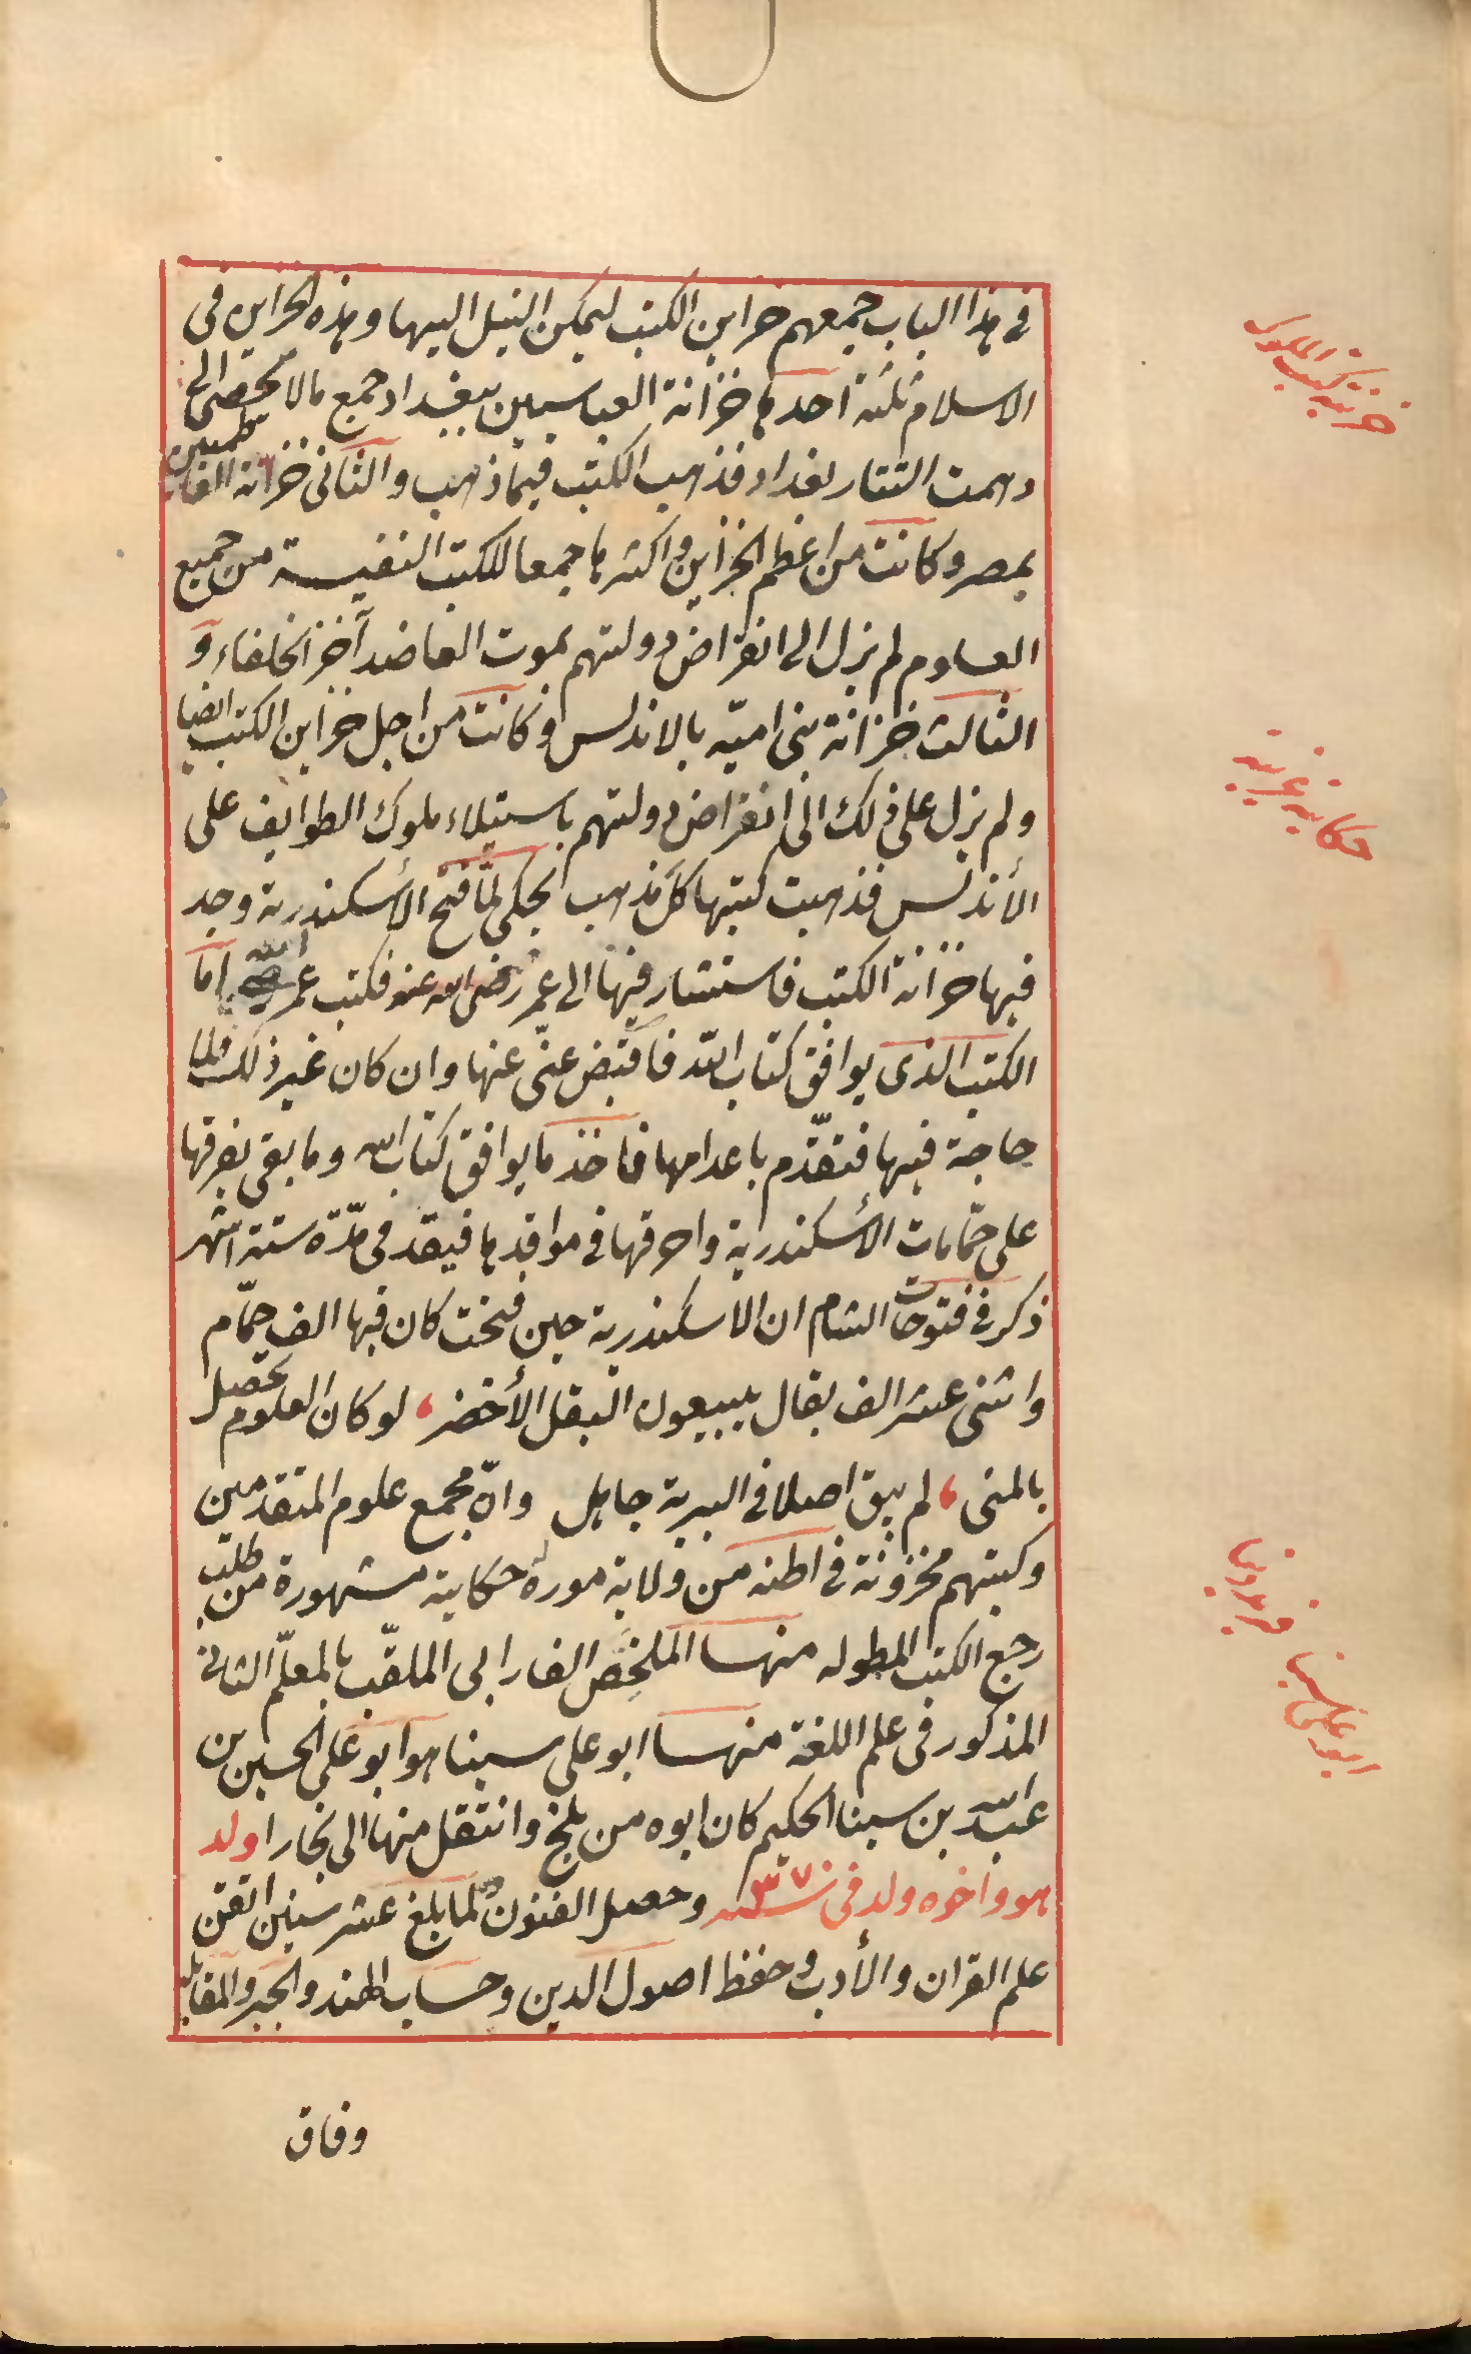 فى هذا الباب جمعهم خراين الكتب ليمكن النيل اليها وهذه الخراين فى
الاسلام ثلثة احدها خزانة العباسيين ببغداد جمع مالا يحصى الى
دهمت التتار بغداد فذهب الكتب فيما ذهب والثانى خزانة الفاطميين
بمصر وكانت من اعظم الخزاين واكثرها جمعا للكتب النفيسة من جميع
العلوم لم يزل الى انقراض دولتهم بموت العاضد آخر الخلفاء و
الثالث خزانة بنى اميّه بالاندلس وكانت من اجل خزاين الكتب ايضا
ولم يزل على ذلك الى انقراض دولتهم باستيلاء ملوك الطوايف على
الأندلس فذهبت كتبها كل مذهب يحكى لمّا فتح الأسكندرية وجد
فيها خزانة الكتب فاستشار فيها الى عمر رضى الله عنه فكتب عمر امّا
الكتب الذى يوافق كتاب الله فاقبض عنّى عنها وان كان غير ذلك فلا
حاجة فيها فتقدّم باعدامها فاخذ ما يوافق كتاب الله وما بقى يفرقها
على حمّامات الأسكندرية واحرقها فى مواقدها فيقد فى مدّة ستة اشهر
ذكر فى فتوحات الشام ان الاسكندرية حين فتحت كان فيها الف حمّام
واثنى عشر الف بقال يبيعون البقل الأخضر، لو كان العلوم تحصل
بالمنى، لم يبق اصلا فى البرية جاهل وانّ مجمع علوم المتقدمين
وكتبهم مخزونة فى اطنه من ولاية موره حكاية مشهورة من طلب
رجع الكتب المطوله منها الملخّص الفارابى الملقّب بالمعلّم الثانى
المذكور فى علم اللغة منها ابو على سينا هو ابو على الحسين بن
عبد الله بن سينا الحكيم كان ابوه من بلخ وانتقل منها الى بخارا ولد
هو واخوه ولد فى سنة ٣٧٠ وحصل الفنون ولما بلغ عشر سنين اتقن
علم القران والأدب وحفظ اصول الدين وحساب الهند والجبر والمقابلة
وفاق
خزينة كتب الملوك
حكاية غريبة
ابو على سينا